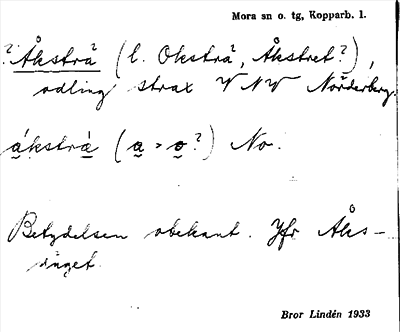 Mora sn o. tg, Kopparb. l.
? Åksträ? (l. Oksträ, Åkstret?),
odling strax VNV Noŕderberg.
a̲´kstrà̲ (a̲ > o̲?) No.
Betydelsen obekant. Jfr Åks-
änget.
Bror Lindén 1933